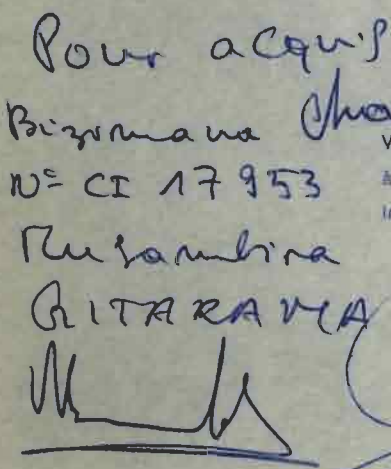 Pour acquis
Bizumana
N° CI 17953
Musambira
GITARAMA